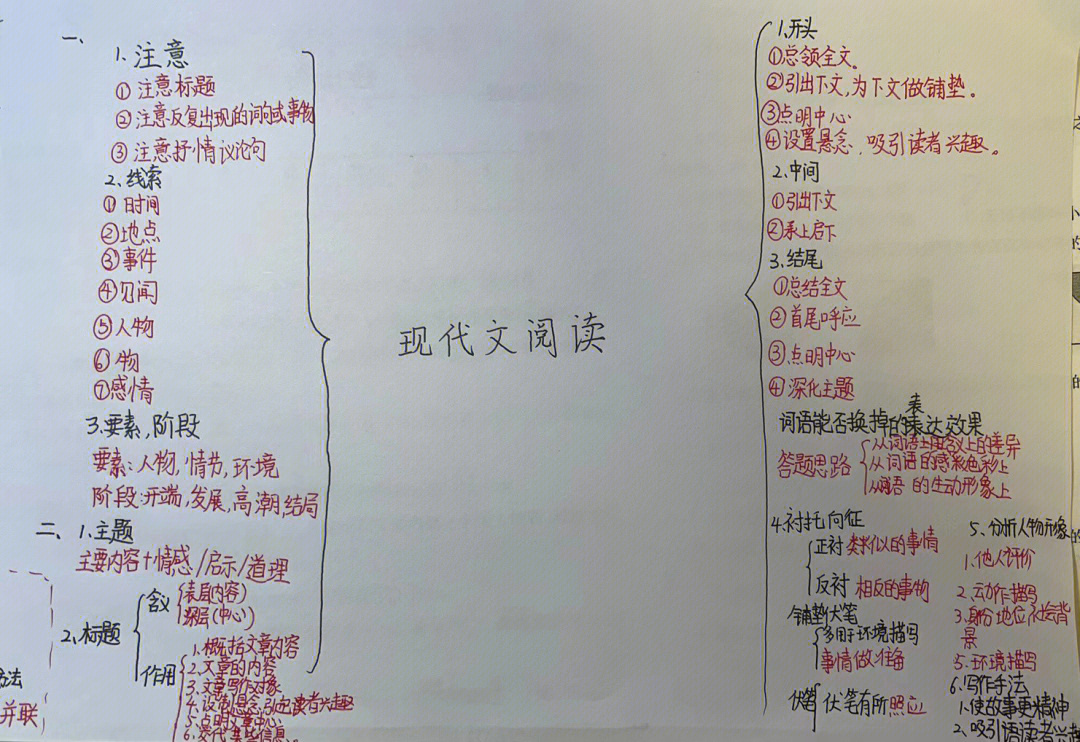 现代文阅读
一、
1. 注意
① 注意标题
② 注意反复出现的词句或事物
③ 注意抒情议论句
2、线索
① 时间
②地点
③事件
④见闻
⑤人物
⑥物
⑦感情
3.要素,阶段
要素:人物,情节,环境
阶段:开端,发展,高潮,结局
二、1.主题
主要内容+情感/启示/道理
2、标题
含义
表层(内容)
深层(中心)
作用
1.概括文章内容
2.文章的内容
3.文章写作对象
4.设制悬念,引起读者兴趣
5.点明文章中心
并联
1.开头
①总领全文。
②引出下文,为下文做铺垫。
③点明中心
④设置悬念,吸引读者兴趣。
2.中间
①引出下文
②承上启下
3.结尾
①总结全文
②首尾呼应
③点明中心
④深化主题
表
词语能否换掉的表达效果
答题思路
从词语程度含义上的差异
从词语的感彩色彩上
从词语的生动形象上
4.衬托向征
正衬 类似的事情
反衬 相反的事物
铺垫伏笔
多用于环境描写
事情做准备
伏笔 伏笔有所照应
5、分析人物形象
1.他人评价
2.动作描写
3.身份地位社会背
景
5.环境描写
6.写作手法
1.使故事更精神
2、吸引语读者兴趣